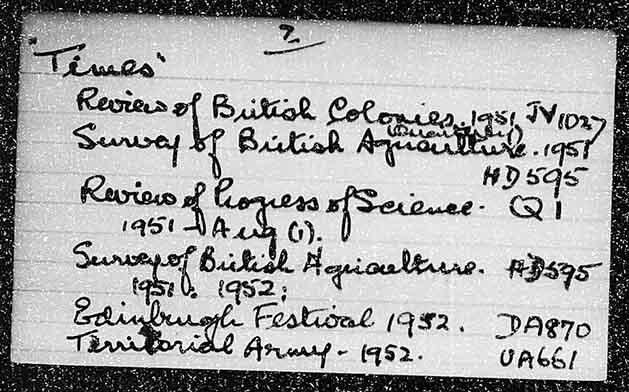 7.
"Times"
Review of British Colonies. 1951 JV1027
(Quarterly)
Survey of British Agriculture. 1951
HD595
Review of Progress of Science. Q1
1951 - Aug (1).
Survey of British Agriculture. HD595
1951. 1952;
Edinbrugh Festival 1952. DA870
Territorial Army - 1952. UA661